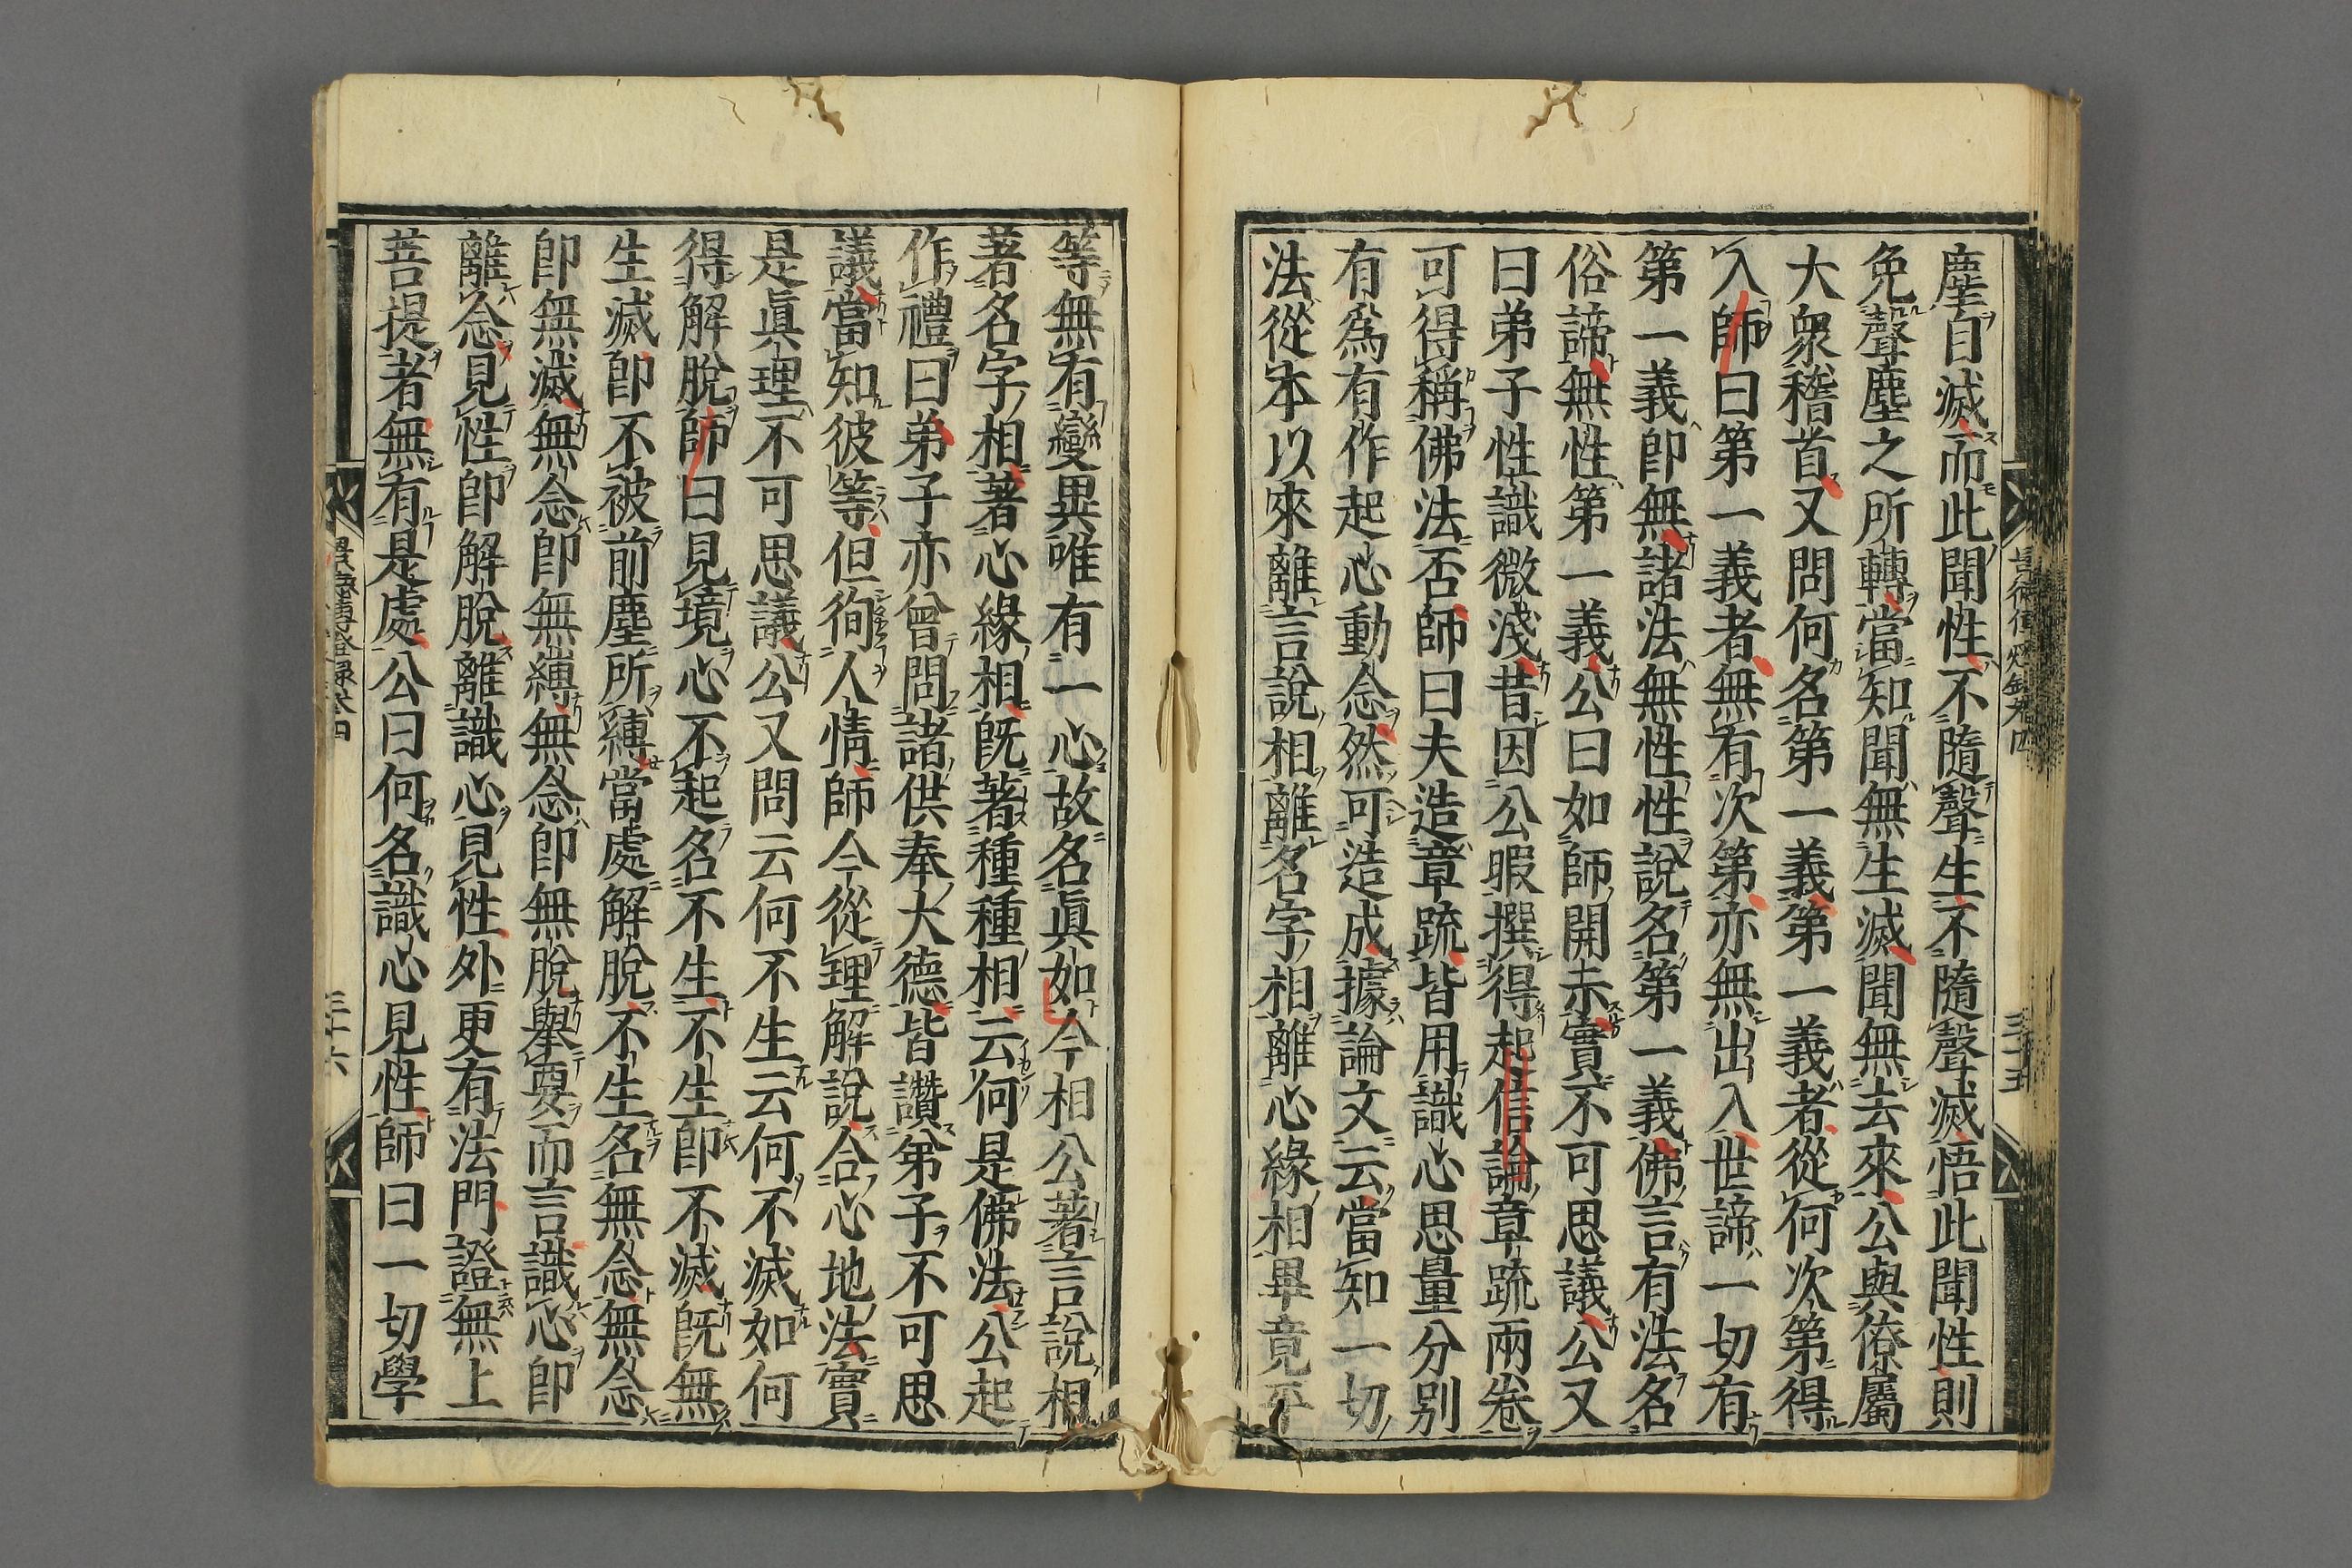 塵自滅而此聞性不隨聲生不隨聲滅悟此聞性則
免聲塵之所轉當知聞無生滅聞無去來公與僚屬
大衆稽首又問何名第一義第一義者從何次第得
入師曰第一義者無有次第亦無出入世諦一切有
第一義卽無諸法無性性說名第一義佛言有法名
俗諦無性第一義公曰如師開示實不可思議公又
曰弟子性識微淺昔因公暇撰得起信論章疏兩卷
可得稱佛法否師曰夫造章疏皆用識心思量分別
有爲有作起心動念然可造成據論文云當知一切
法從本以來離言說相離名字相離心緣相畢竟平
等無有變異唯有一心故名眞如今相公著言說相
著名字相著心緣相旣著種種相云何是佛法公起
作禮曰弟子亦曾問諸供奉大德皆讚弟子不可思
議當知彼等但徇人情師今從理解說合心地法實
是眞理不可思議公又問云何不生云何不滅如何
得解脫師曰見境心不起名不生不生卽不滅旣無
生滅卽不被前塵所縛當處解脫不生名無念無念
卽無滅無念卽無縛無念卽無脫舉要而言識心卽
離念見性卽解脫離識心見性外更有法門證無上
菩提者無有是處公曰何名識心見性師曰一切學